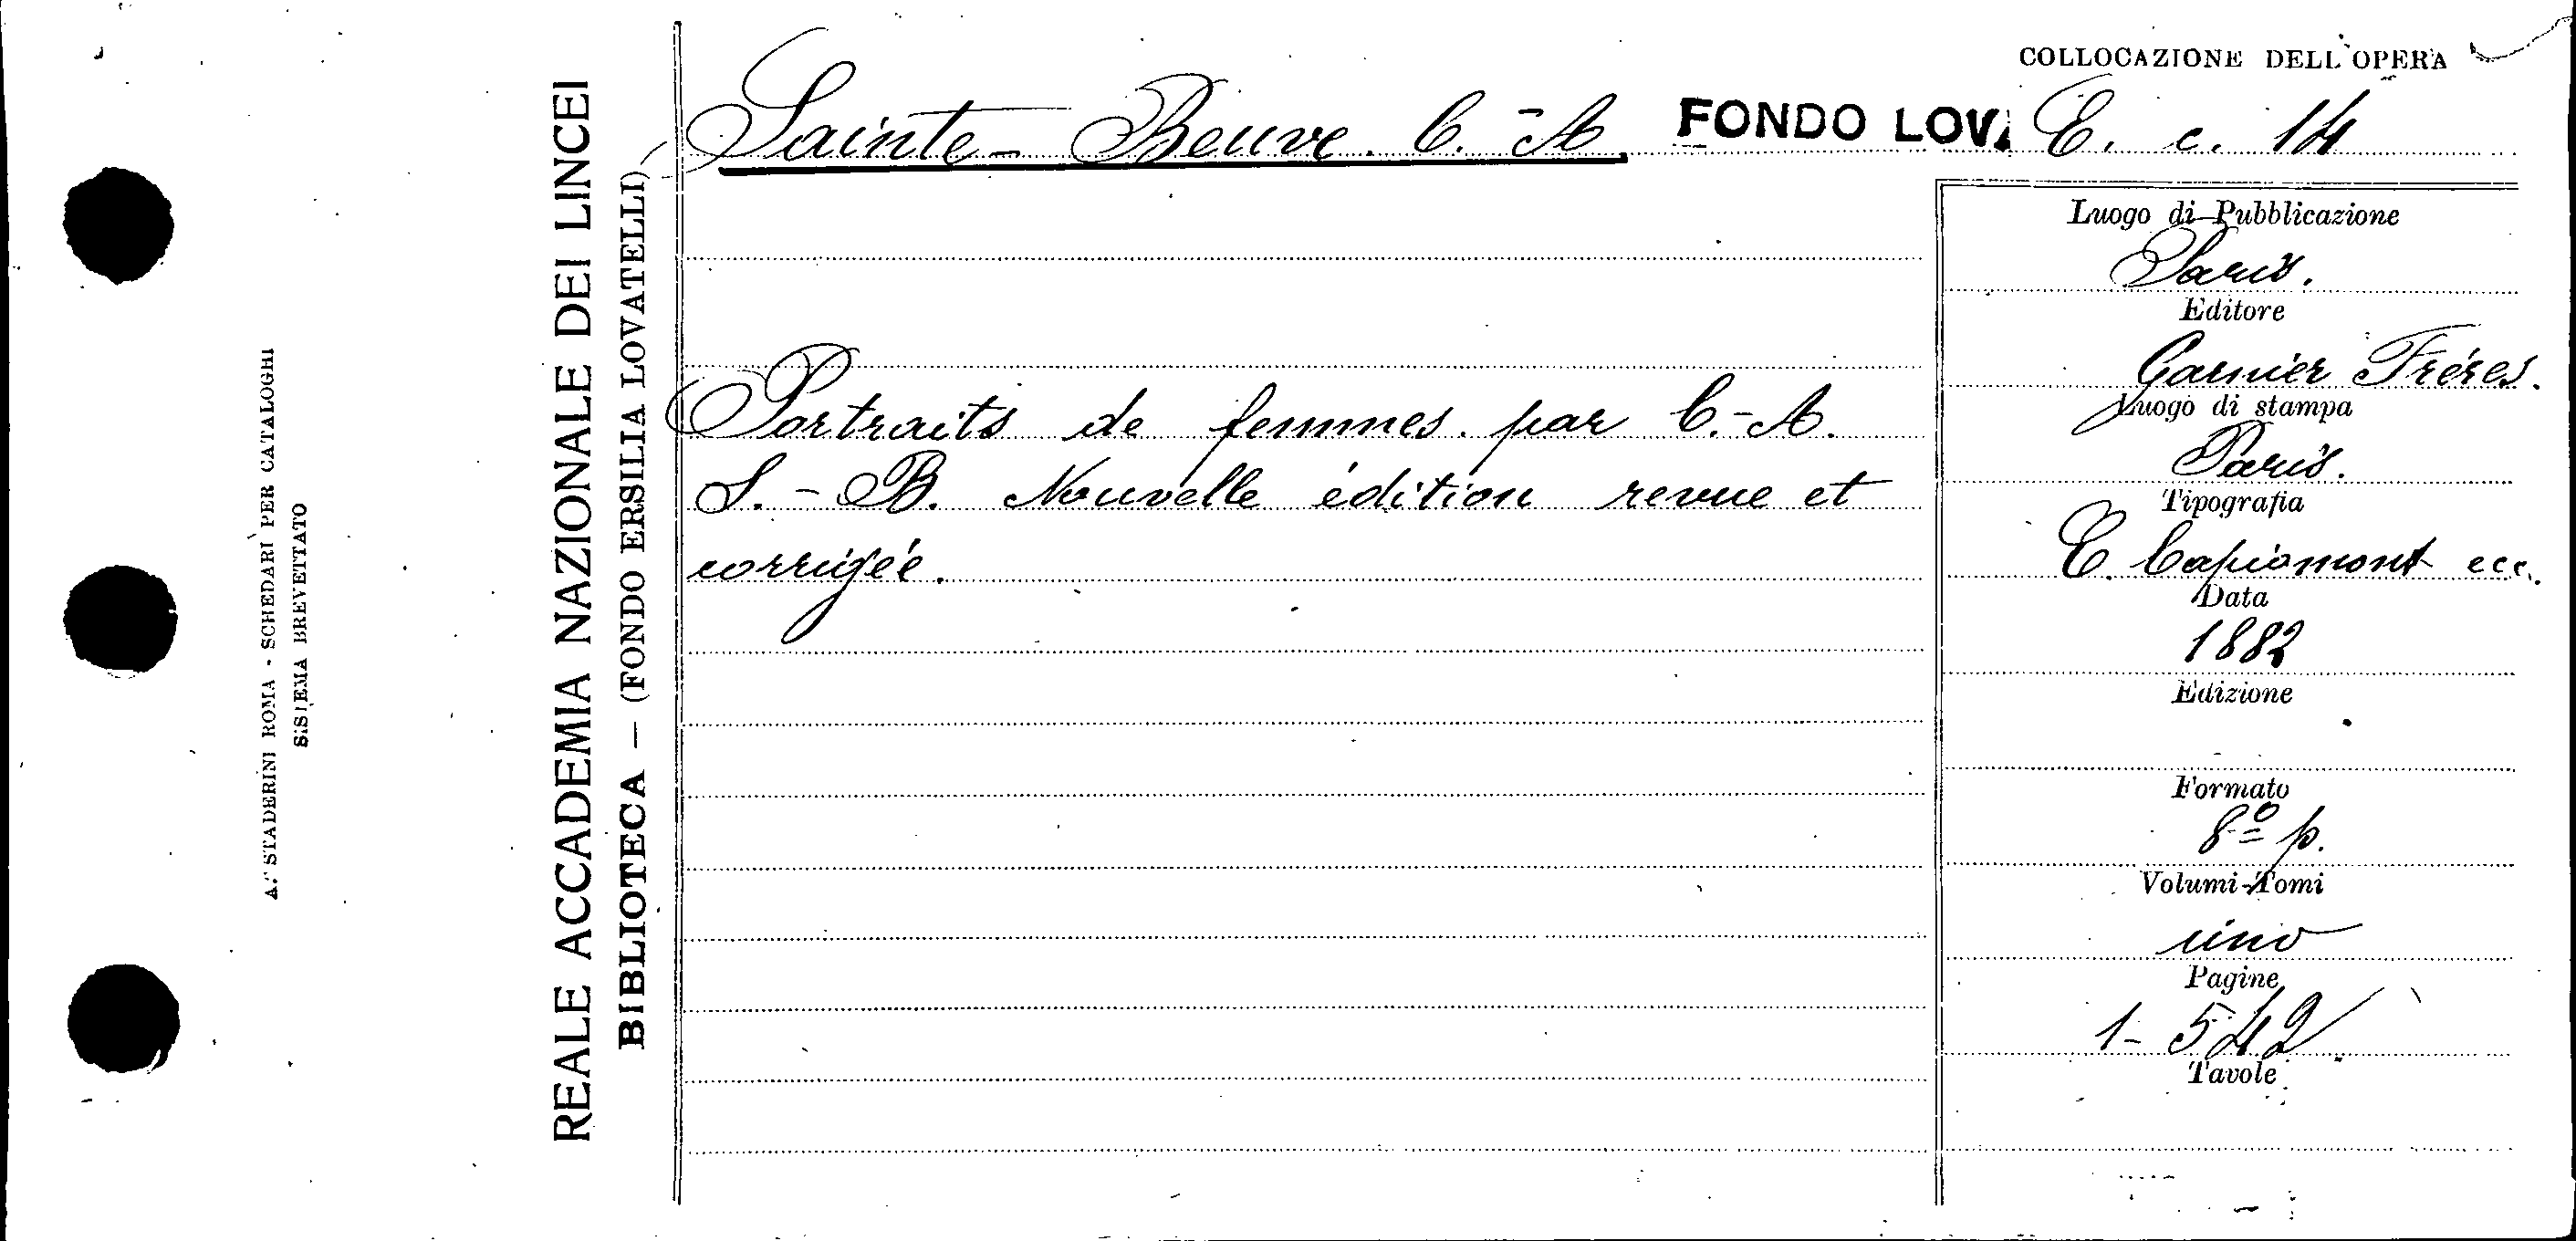 A. STADERINI ROMA - SCHEDARI PER CATALOGHI
SISTEMA BREVETTATO
REALE ACCADEMIA NAZIONALE DEI LINCEI
BIBLIOTECA — (FONDO ERSILIA LOVATELLI)
COLLOCAZIONE DELL'OPERA
Sainte-Beuve. C.-A. FONDO LOV. E. c. 14
Portraits de femmes. par C.-A.
S.-B. Nouvelle édition revue et
corrigée.
Luogo di Pubblicazione
Paris.
Editore
Garnier Fréres.
Luogo di stampa
Paris.
Tipografia
E. Capiomont ecc.
Data
1882
Edizione
Formato
8º p.
Volumi-Tomi
uno
Pagine
1-542.
Tavole